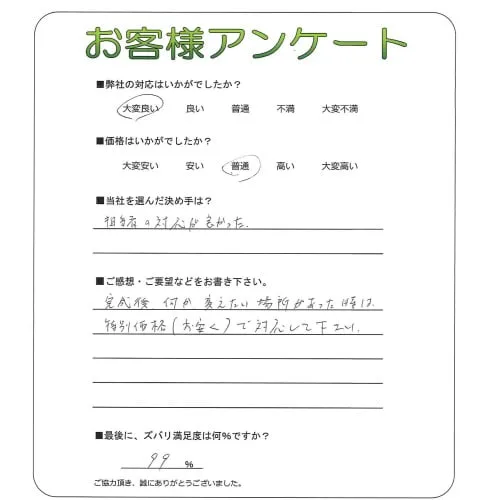 お客様アンケート
■弊社の対応はいかがでしたか?
大変良い 良い 普通 不満 大変不満
■価格はいかがでしたか?
大変安い 安い 普通 高い 大変高い
■当社を選んだ決め手は?
担当者の対応が良かった.
■ご感想・ご要望などをお書き下さい。
完成後 何か変えたい場所があった時は、
特別価格(お安く)で対応して下さい.
■最後に、ズバリ満足度は何%ですか?
99 %
ご協力頂き、誠にありがとうございました。